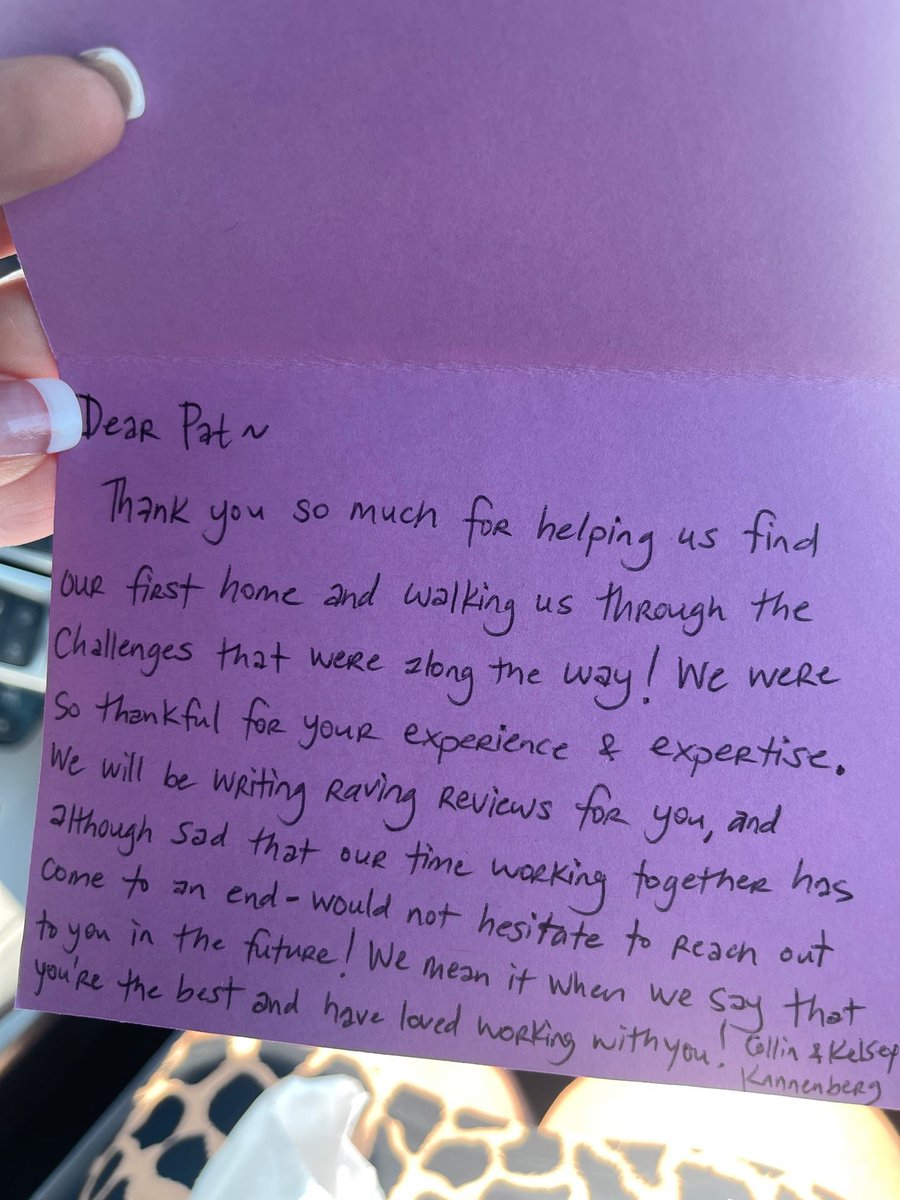 Dear Pat ~
Thank you so much for helping us find
our first home and walking us through the
Challenges that were along the way! We were
So thankful for your experience & expertise.
We will be writing raving reviews for you, and
although sad that our time working together has
come to an end - would not hesitate to reach out
to you in the future! We mean it when we say that
you're the best and have loved working with you! Collin & Kelsey
Kannenberg